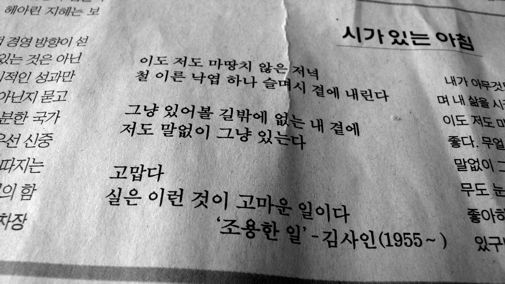 헤아린 지혜는 보
경영 방향이 섣
있는 것은 아닌
적인 성과만
아닌지 묻고
분한 국가
우선 신중
따지는
의 함
차장
시가 있는 아침
이도 저도 마땅치 않은 저녁
철 이른 낙엽 하나 슬며시 곁에 내린다
그냥 있어볼 길밖에 없는 내 곁에
저도 말없이 그냥 있는다
고맙다
실은 이런 것이 고마운 일이다
‘조용한 일’ - 김사인(1955~)
내가 아무것
며 내 삶을 시
이도 저도 마
좋다. 무얼
말없이 그
무도 눈
좋아하
있구